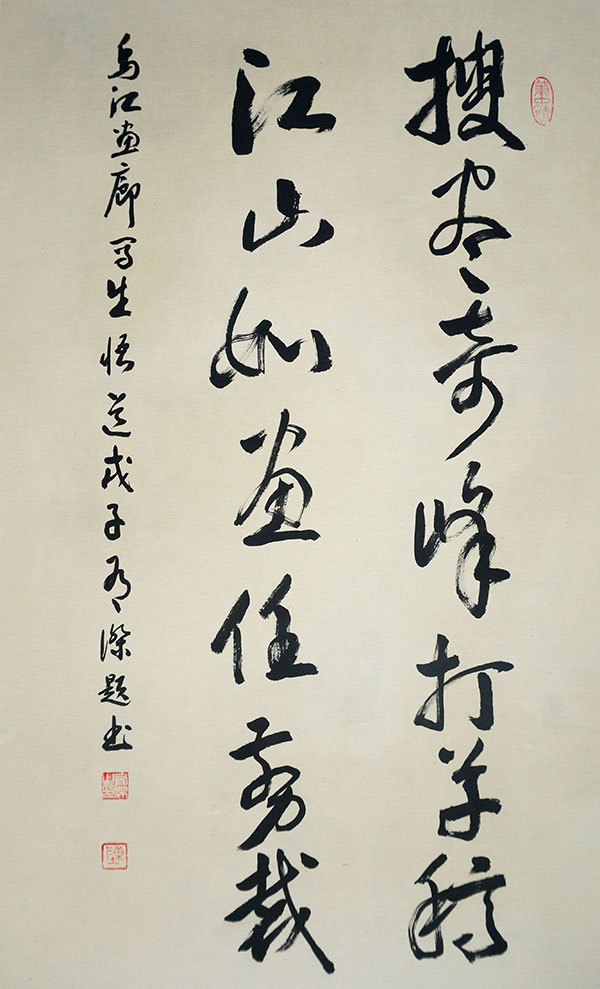 搜尽奇峰打草稿
江山如画任剪裁
乌江画廊写生悟道戊子君傑题书